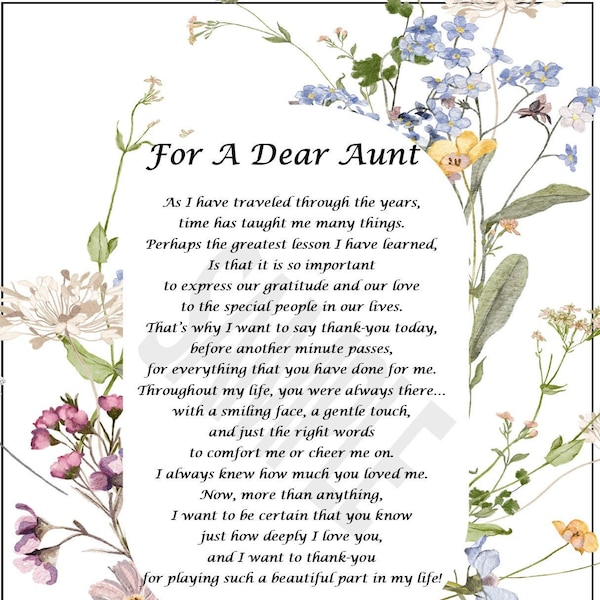 For A Dear Aunt
As I have traveled through the years,
time has taught me many things.
Perhaps the greatest lesson I have learned,
Is that it is so important
to express our gratitude and our love
to the special people in our lives.
That's why I want to say thank-you today,
before another minute passes,
for everything that you have done for me.
Throughout my life, you were always there...
with a smiling face, a gentle touch,
and just the right words
to comfort me or cheer me on.
I always knew how much you loved me.
Now, more than anything,
I want to be certain that you know
just how deeply I love you,
and I want to thank-you
for playing such a beautiful part in my life!
SAMPLE